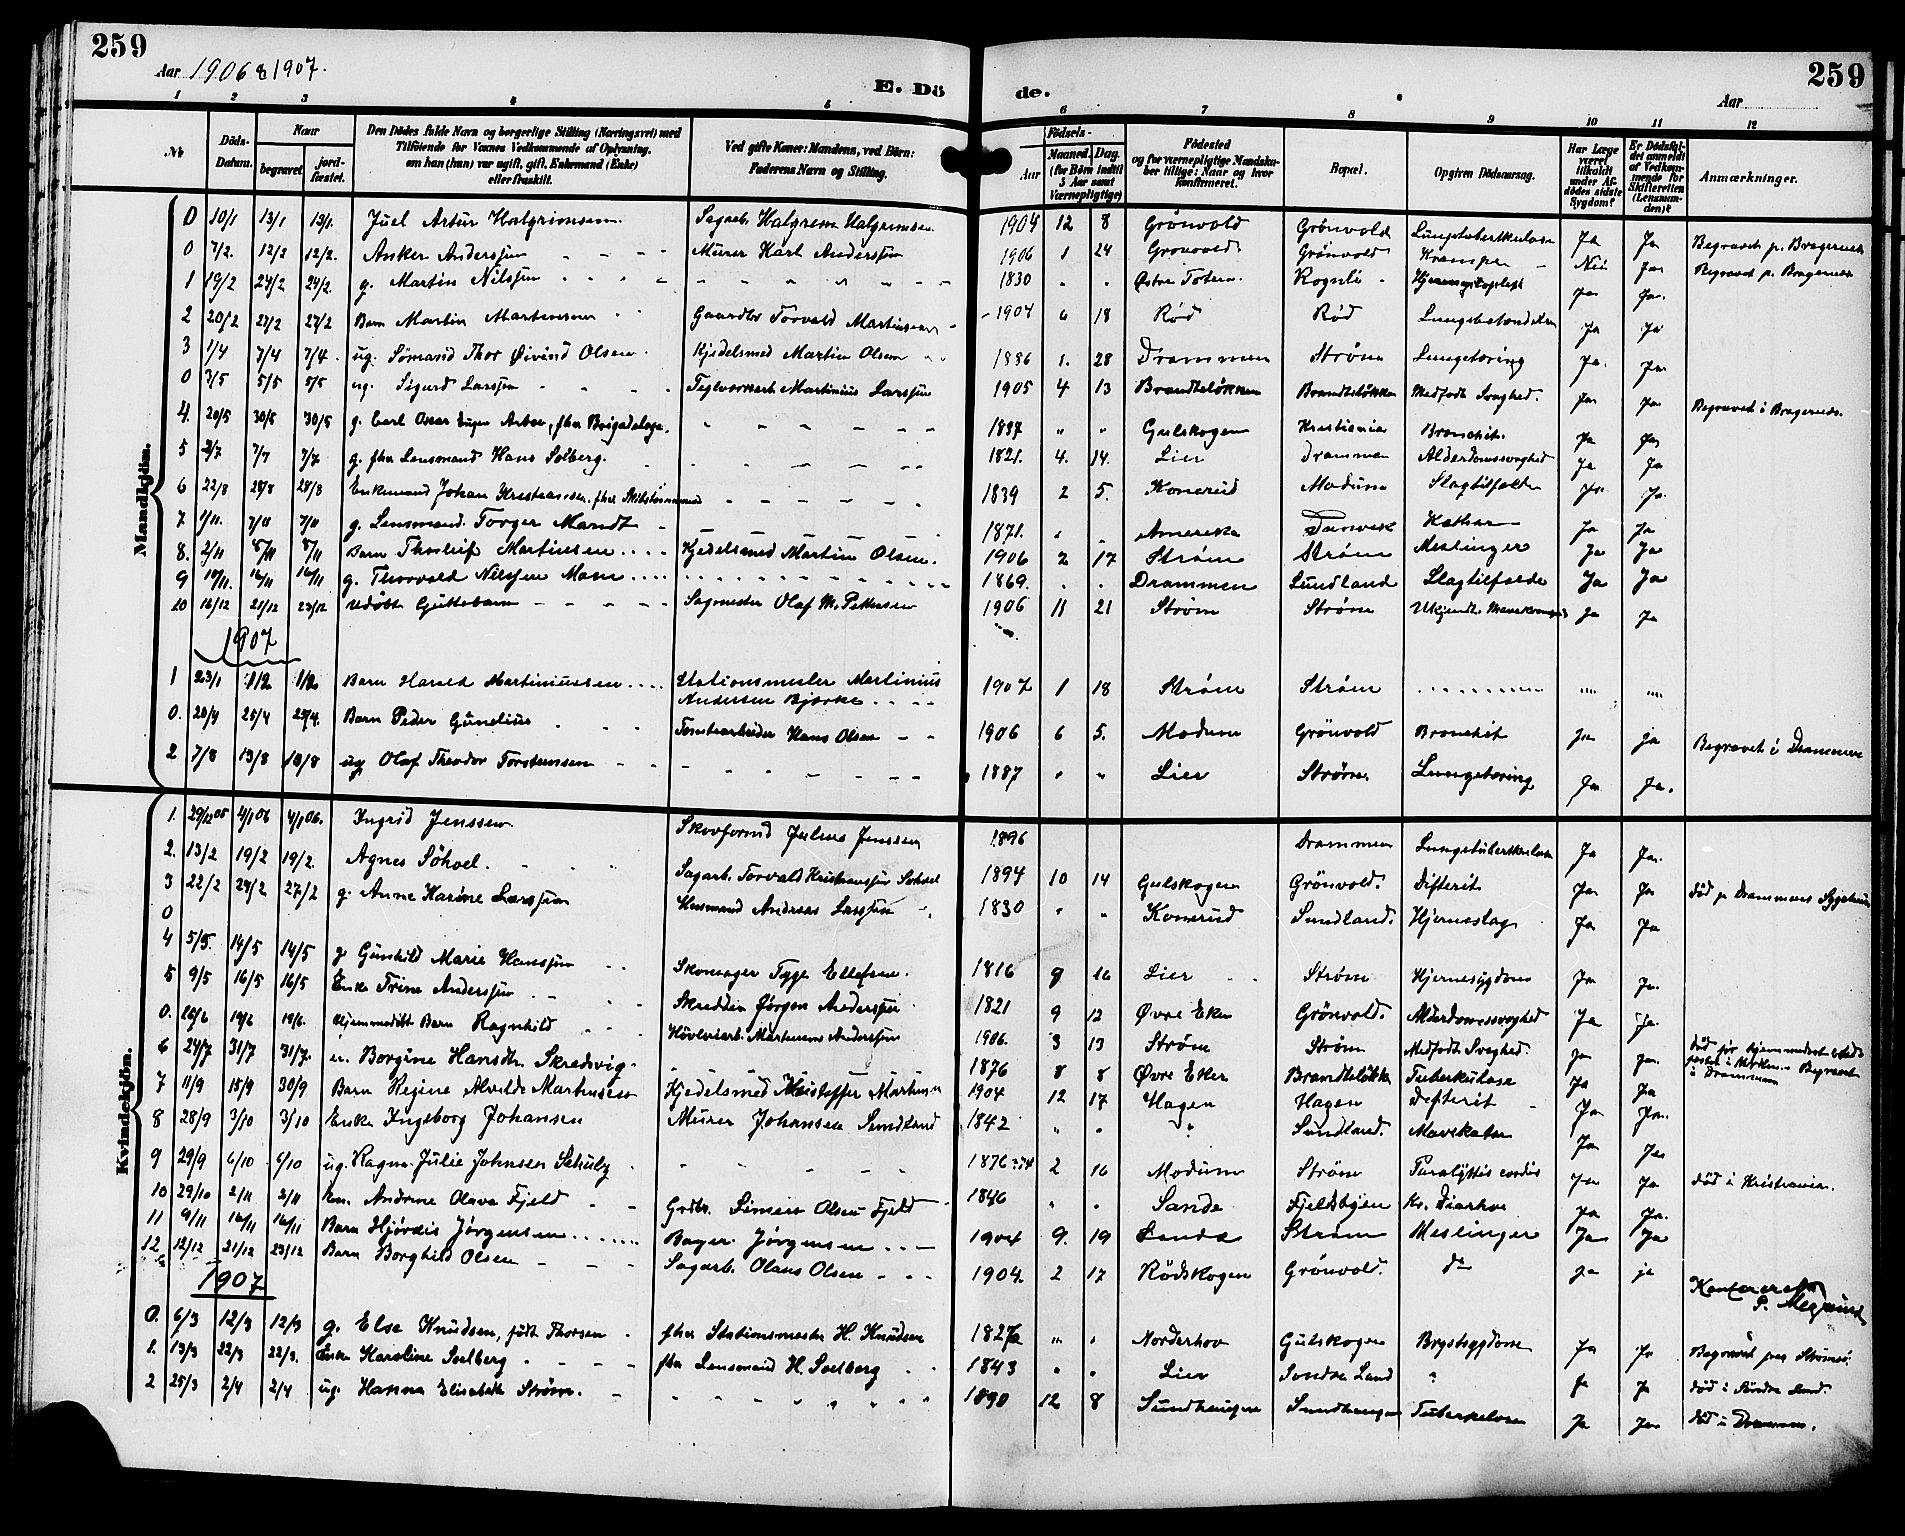 259
Aar 1906 & 1907.
E. Dö de.
259
Aar
1 2 3 4 5 6 7 8 9 10 11 12
No
Döds-Datum.
Naar
begravet
jord-fæstet.
Den Dödes fulde Navn og borgerlige Stilling (Næringsvei) med
Tilföiende for Voxnes Vedkommende af Oplysning,
om han (hun) var ugift, gift, Enkemand (Enke)
eller fraskilt.
Ved gifte Koner: Mandens, ved Börn:
Faderens Navn og Stilling.
Födsels-
Aar
Maaned. Dag.
(for Börn indtil
5 Aar samt
Værnepligtige)
Födested
og for værnepligtige Mandska-
ber tillige: Naar og hvor
konfirmeret.
Bopæl.
Opgiven Dödsaarsag.
Har Læge
været
tilkaldt
under Af-
dödes sidste
Sygdom?
Er Dödsfal-
det anmeldt
af Vedkom-
mende for
Skifteretten
(Lensman-
den)?
Anmærkninger.
Mandkjön.
0 10/1 13/1 13/1. Juel Artur Halgrimsen. Sagarb. Halgrem Halgrimsen 1904 12 8 Grönvold Grönvold Lungetuberkulose Ja Ja Begravet p. Bragernes
0 7/2. 12/2 12/2. Anker Anderssen Murer Karl Anderssen 1906 1 24 Gronvold Grönvold Krampe Nei Ja Begravet p. Bragernes
1 19/2 24/2 24/2. g. Martin Nilssen 1830 " " Østre Toten. Rognli Ja Ja.
2 20/2 27/2 27/2 Barn Martin Martinsen Gaardbr Torvald Martinsen 1904 6 18 Rød Rød Lungebetændelse Ja Ja
3 1/4 7/4 7/4. ug. Sömand Thor Øivind Olsen. Kjedelsmed Martin Olsen 1886 1. 28 Drammen Strøm Lungetæring Ja. Ja
0 3/5 5/5 5/5 ug. Sigurd Larssen Teglværkarb. Martinius Larssen 1905 4 13 Brandteløkken Brandteløkken Medfødt Svaghed. Ja Ja Begravet i Bragernes.
4. 20/5 30/5 30/5 g. Carl Oscar Eugen Arbo, fhv Brigadelæge. 1837 " " Gulskogen Kristiania Bronchit. Ja Ja
5 3/7 7/7 7/7 g. fhv Lensmand Hans Solberg. 1821. 4. 14. Lier Drammen Alderdomssvaghed Ja Ja
6 22/8 28/8 28/8 Enkemand Johan Kristiansen. fhv Skibstømmermand 1839 2 5. Konerud Modum Slagtilfælde Ja Ja.
7 1/11. 7/11 7/11 g. Lensmand. Torger Mandt 1871. " " Amerika Danvik Kathar Ja Ja
8. 2/11 8/11 8/11 Barn Thorleif Martinsen Kjedelsmed Martin Olsen. 1906 2 17 Strøm Strøm Meslinger Ja Ja
9 10/11. 16/11 16/11 g. Thorvald Nilssen Moen 1869. " " Drammen Sundland Slagtilfælde Ja Ja
10 16/12 21/12 23/12 Udøbt Guttebarn Sagmester Olaf M. Pettersen 1906 11 21 Strøm Strøm Ukjendt. Mavekrampe Ja Ja
1907
1 23/1 1/2 1/2 Barn Harald Martiniussen Stationsmester Martinius
Andersen Bjørke 1907 1 18 Strøm Strøm
0. 20/4 25/4 25/4. Barn Peder Gunelius Tomtearbeider Hans Olsen 1906 6 5. Modum Grönvold Bronchit ja ja Begravet i Drammen
2 7/8 13/8 13/8 ug Olaf Theodor Torstensen 1887 " " Lier Strøm Lungetæring Ja Ja.
Kvindekjön.
1. 29/12 05 4/1 06 4/1 06. Ingrid Jenssen Skovformd Julius Jenssen 1896 Drammen Lungetuberkulose Ja Ja.
2. 13/2 19/2 19/2. Agnes Söhoel. Sagarb. Torvald Kristiansen Søhoel 1894 10 14 Gulskogen Grönvold. Difterit Ja Ja død p Drammens Sygehus
3 22/2 27/2 27/2 g Anne Karine Larssen Husmand Andreas Larssen 1830 " " Konerud Sundland. Hjerneslag Ja Ja
0
4 5/5. 14/5 14/5 g Gunhild Marie Hanssen Skomager Tygge Ellefsen. 1816 9 16 Lier Strøm Hjernesygdom Ja Ja.
5 9/5 16/5 16/5 Enke Trine Anderssen Skrædder Jørgen Anderssen 1821 9 12 Øvre Eker Grönvold. Alderdomssvaghed Ja Ja.
0. 26/6 19/6 19/6. Hjemmedøbt Barn Ragnhild Høvleriarb. Martinius Anderssen 1906. 3 13 Strøm Strøm Medfødt Svaghed. Ja Ja. død før hjemmedåben i Kirken. Begravet i Drammen
6 24/7 31/7 31/7. Borgine Hansdtr Skredsvig. 1876 8 8 Øvre Eker Brandteløkka Tuberkulose Ja Ja
7 11/9 15/9 30/9 Barn Regine Alvilde Martinsen Kjedelsmed Kristoffer Martinsen 1904 12 17 Hagen Hagen Difterit Ja Ja.
8 28/9 3/10 3/10 Enke Ingeborg Johansen Murer Johansen Sundland 1842 " " " Sundland. Mavekatar Ja Ja
9 29/9 6/10 6/10 ug. Ragna Julie Johnsen Schulz 1876 2 16 Modum Strøm Paralyttis cordis Ja Ja død i Kristiania.
10 29/10 2/11 2/11 kn. Andrine Olava Fjeld Grdbr. Simen Olsen Fjeld 1846 " " Sande Fjeldsbyen Kr. Diarhoe Ja Ja.
11 9/11 16/11 16/11 Barn Hjørdis Jørgensen Bager. Jørgensen 1904 9. 19 Sande Strøm Meslinger Ja Ja
12 12/12 21/12 23/12 Barn Borghild Olsen Sagarb. Olaus Olsen 1904. 2 17 Rødskogen Grönvold. do ja ja
1907
0. 6/3 12/3 12/3 g. Else Knudsen, født Thorsen fhv Stationsmester H. Knudsen 1827 " " Norderhov Gulskogen Brystsygdom Ja Ja Begravet paa Strømsø.
1. 13/3 22/3 22/3. Enke Karoline Solberg fhv Lensmand H. Solberg 1843 " " Lier Søndre Land " Ja Ja død i Søndre Land.
2 25/3 2/4 2/4 ug. Hanna Elisabeth Strøm. 1890 12 8 Sundhaugen Sundhaugen Tuberkulose Ja Ja død i Drammen.